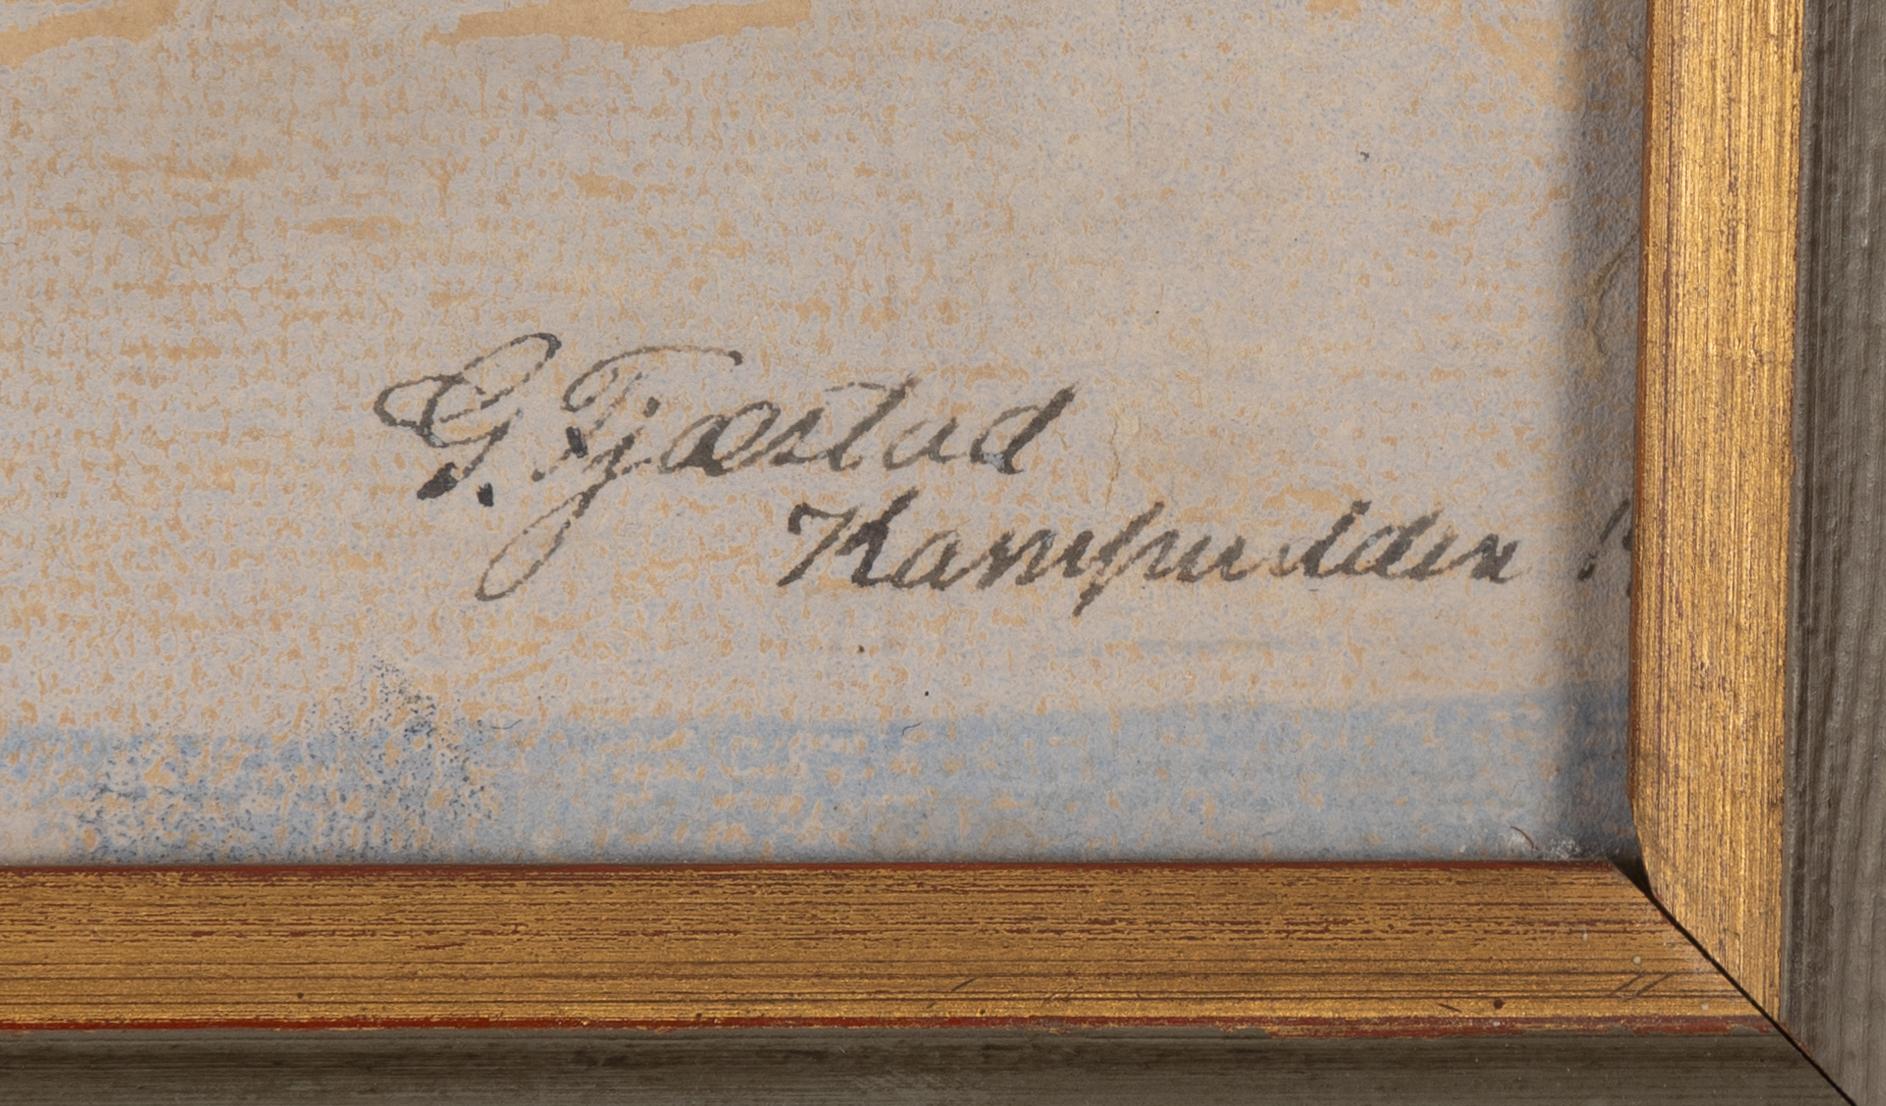 G. Fjæstad
Kampudden